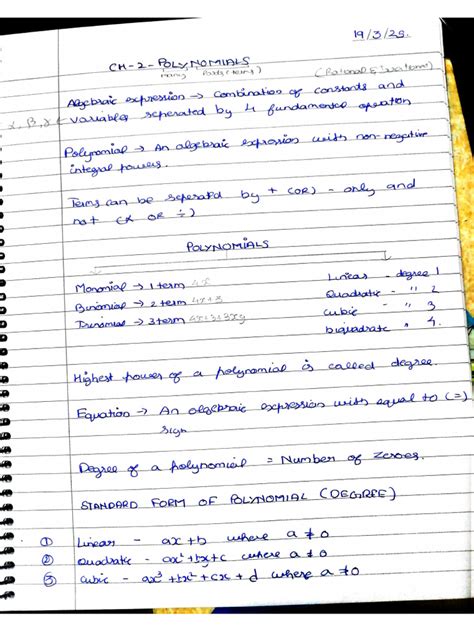 19/3/25.
CH-2-POLYNOMIALS
many Parts (terms) (Rational &
Algebraic expression → Combination of constants and
α, β, γ ← variables seperated by 4 fundamental operation
Polynomial → An algebraic expression with non-negative
integral powers.
Terms can be seperated by + (OR) - only and
not (x OR ÷)
POLYNOMIALS
Monomial → 1 term 4x Linear - degree 1
Binomial → 2 term 4x+3 Quadratic - " 2
Trinomial → 3 term 4x+3+3xy cubic - " 3
biquadratic " 4.
Highest power of a polynomial is called degree.
Equation → An algebraic expression with equal to (=)
sign
Degree of a polynomial = Number of zeroes.
STANDARD FORM OF POLYNOMIAL (DEGREE)
① Linear - ax+b where a≠0
② Quadratic - ax²+bx+c where a≠0
③ Cubic - ax³+bx²+cx+d where a≠0